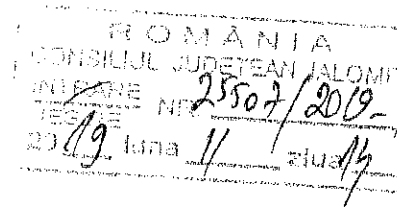 ROMÂNIA
CONSILIUL JUDEȚEAN IALOMI
INTRARE
IEȘIRE NR. 25507/2019-
2019 luna 11 ziua 14